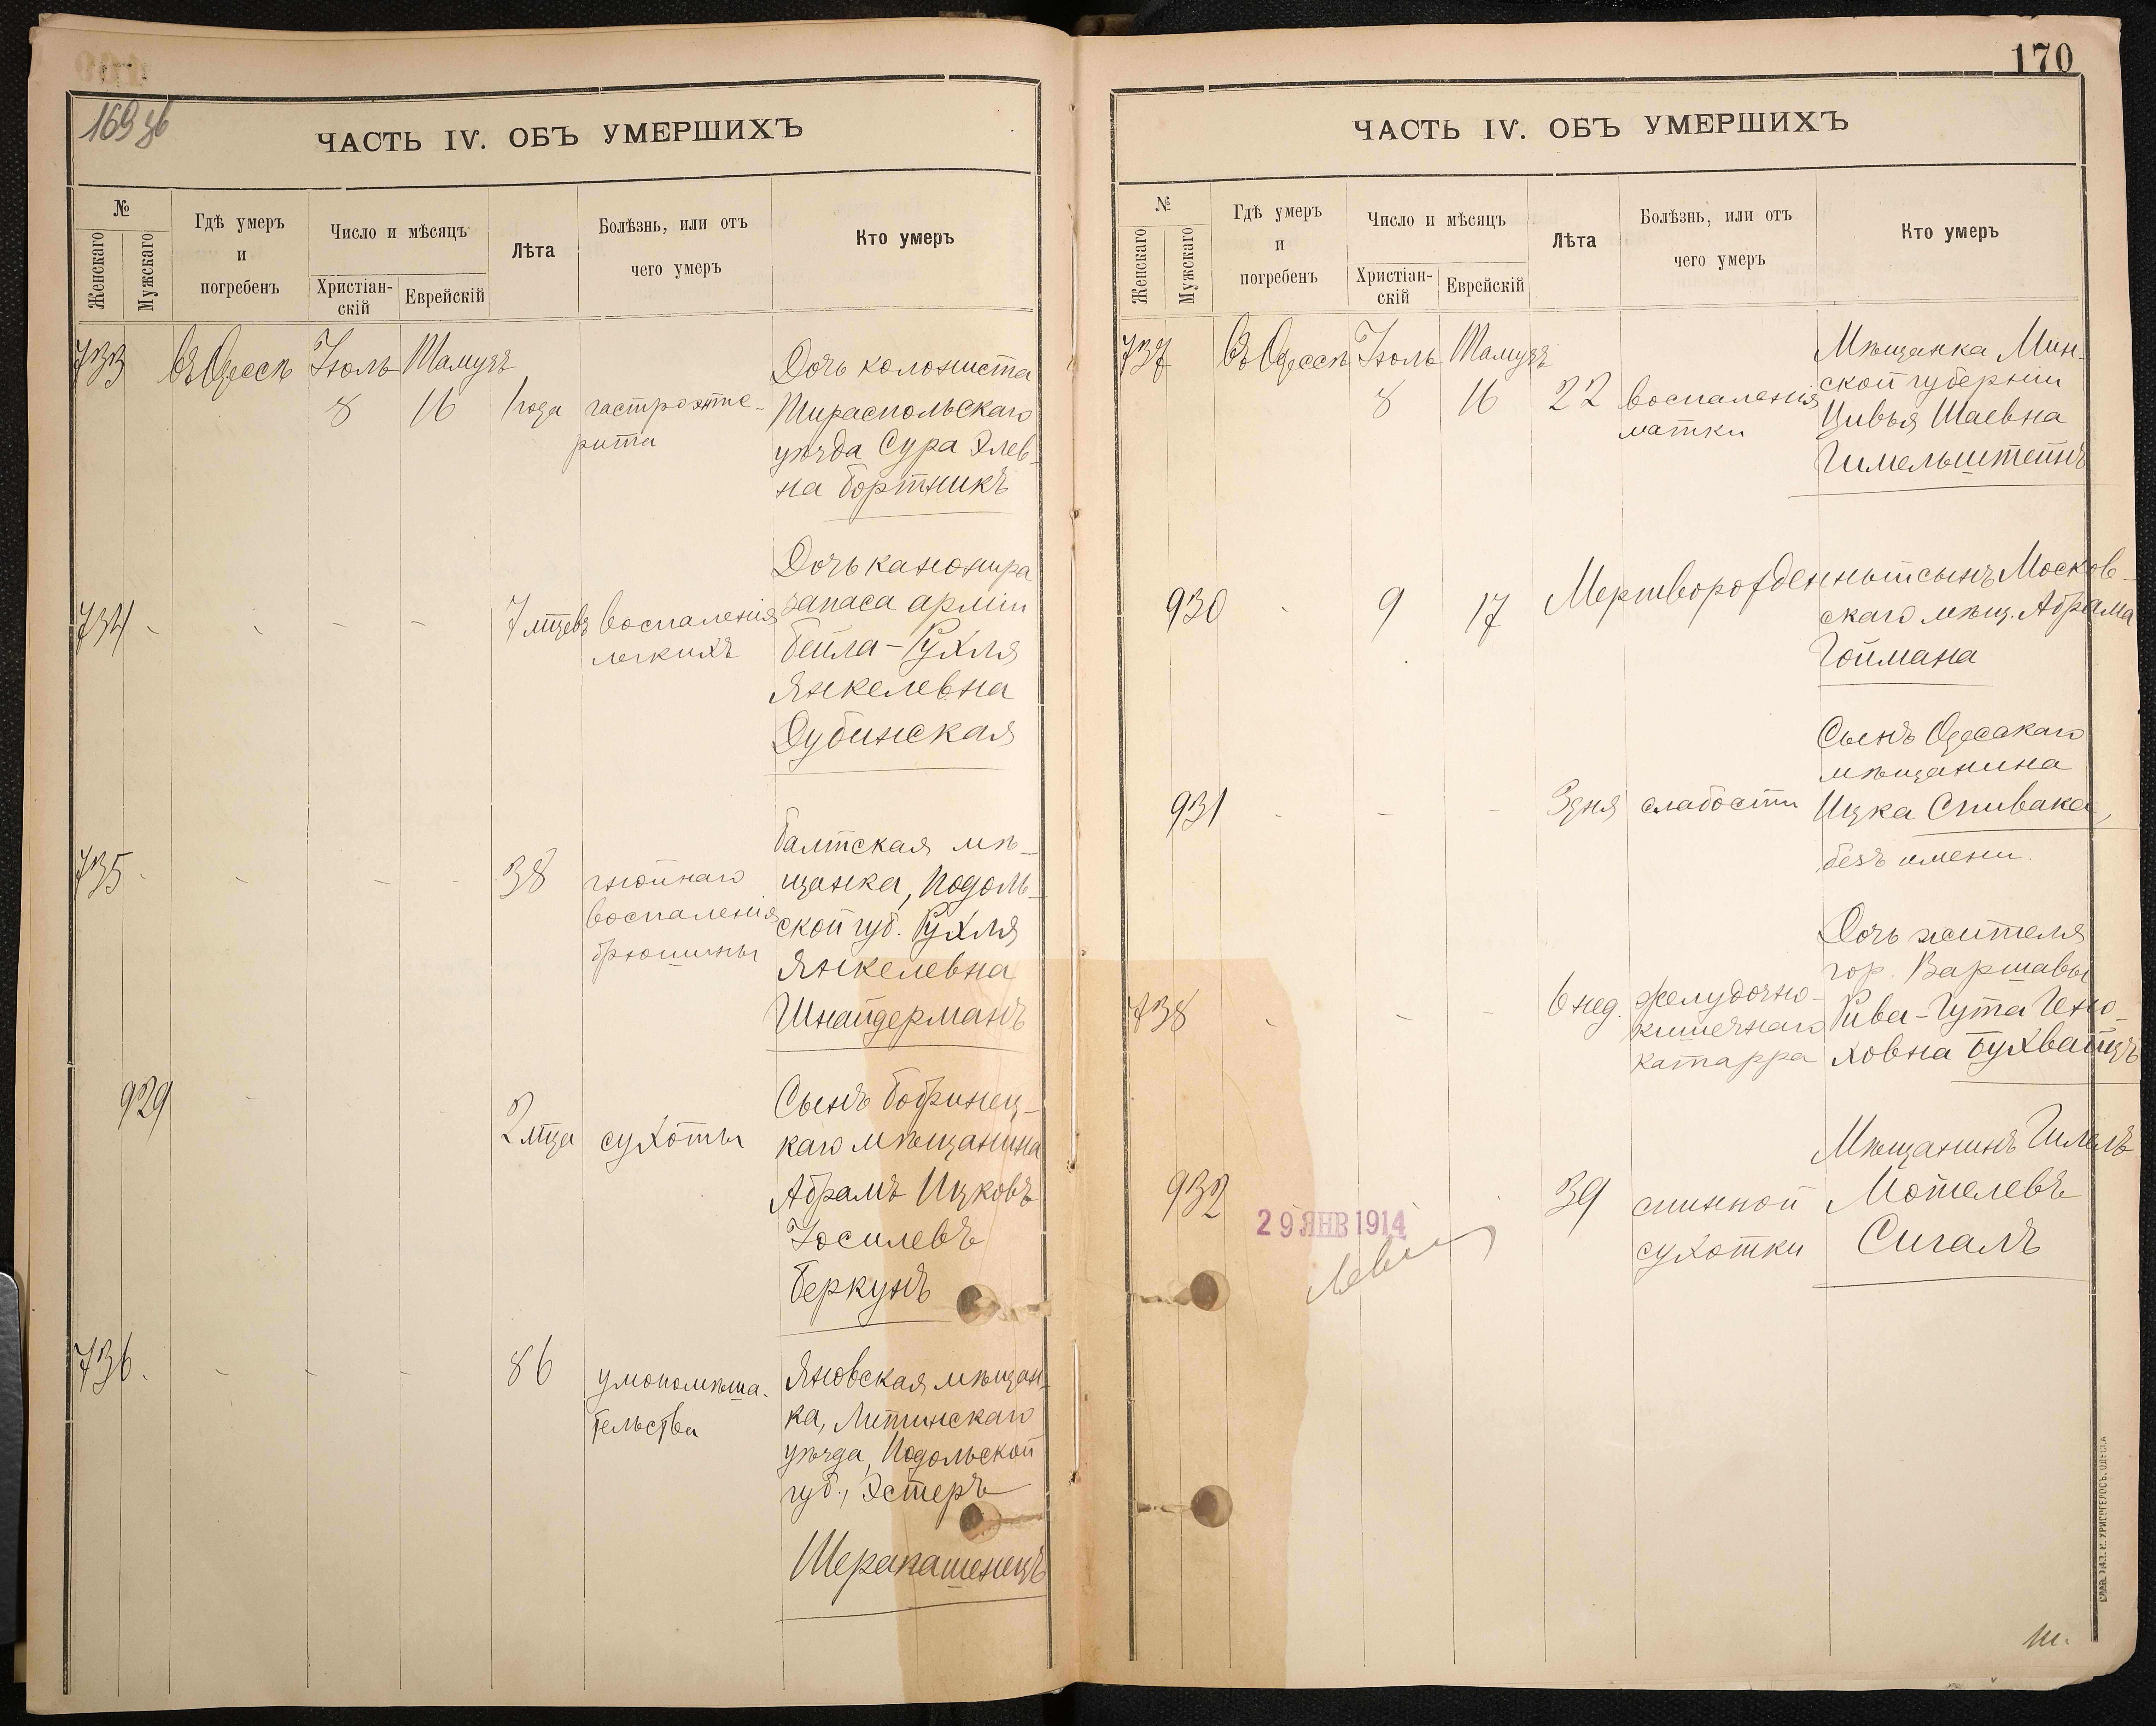 169 об
ЧАСТЬ IV. ОБЪ УМЕРШИХЪ
№
Женскаго
Мужскаго
Гдѣ умеръ
и
погребенъ
Число и мѣсяцъ
Христіан-
скій
Еврейскій
Лѣта
Болѣзнь, или отъ
чего умеръ
Кто умеръ
733 въ Одессѣ Іюль Тамузъ
8 16 1 года гастроэнте-
рита
Дочь колониста
Тираспольскаго
уѣзда Сура Элев-
на Бортникъ
734 - - - - 7 мѣцевъ воспаленія
легкихъ
Дочь канонира
запаса арміи
Бейла-Рухля
Янкелевна
Дубинская
735 - - - - 38 гнойнаго
воспаленія
брюшины
Балтская мѣ-
щанка, Подоль-
ской губ. Рухля
Янкелевна
Шнайдерманъ
929 - - - 2 мѣца сухоты
Сынъ Бобринец-
каго мѣщанина
Абрамъ Ицковъ
Іосилевъ
Беркунъ
736. - - - 86 умопомѣша-
тельства
Яновская мѣщан-
ка, Литинскаго
уѣзда, Подольской
губ., Эстеръ
Шерапашенецъ
170
ЧАСТЬ IV. ОБЪ УМЕРШИХЪ
№
Женскаго
Мужскаго
Гдѣ умеръ
и
погребенъ
Число и мѣсяцъ
Христіан-
скій
Еврейскій
Лѣта
Болѣзнь, или отъ
чего умеръ
Кто умеръ
737 въ Одессѣ Іюль Тамузъ
8 16 22 воспаленія
матки
Мѣщанка Мин-
ской губерніи
Цивья Шаевна
Гимельштейнъ
930 - 9 17 Мертворожденный сынъ Москов-
скаго мѣщ. Абрама
Гоймана
931 - - - 3 дня слабости
Сынъ Одесскаго
мѣщанина
Ицка Спивака,
безъ имени.
738 - - - 6 нед. желудочно-
кишечнаго
катарра
Дочь жителя
гор. Варшавы
Рива-Гута Гено-
ховна Бухвайцъ
932 39 спинной
сухотки
Мѣщанинъ Гилель
Мотелевъ
Сигалъ
29 ЯНВ 1914